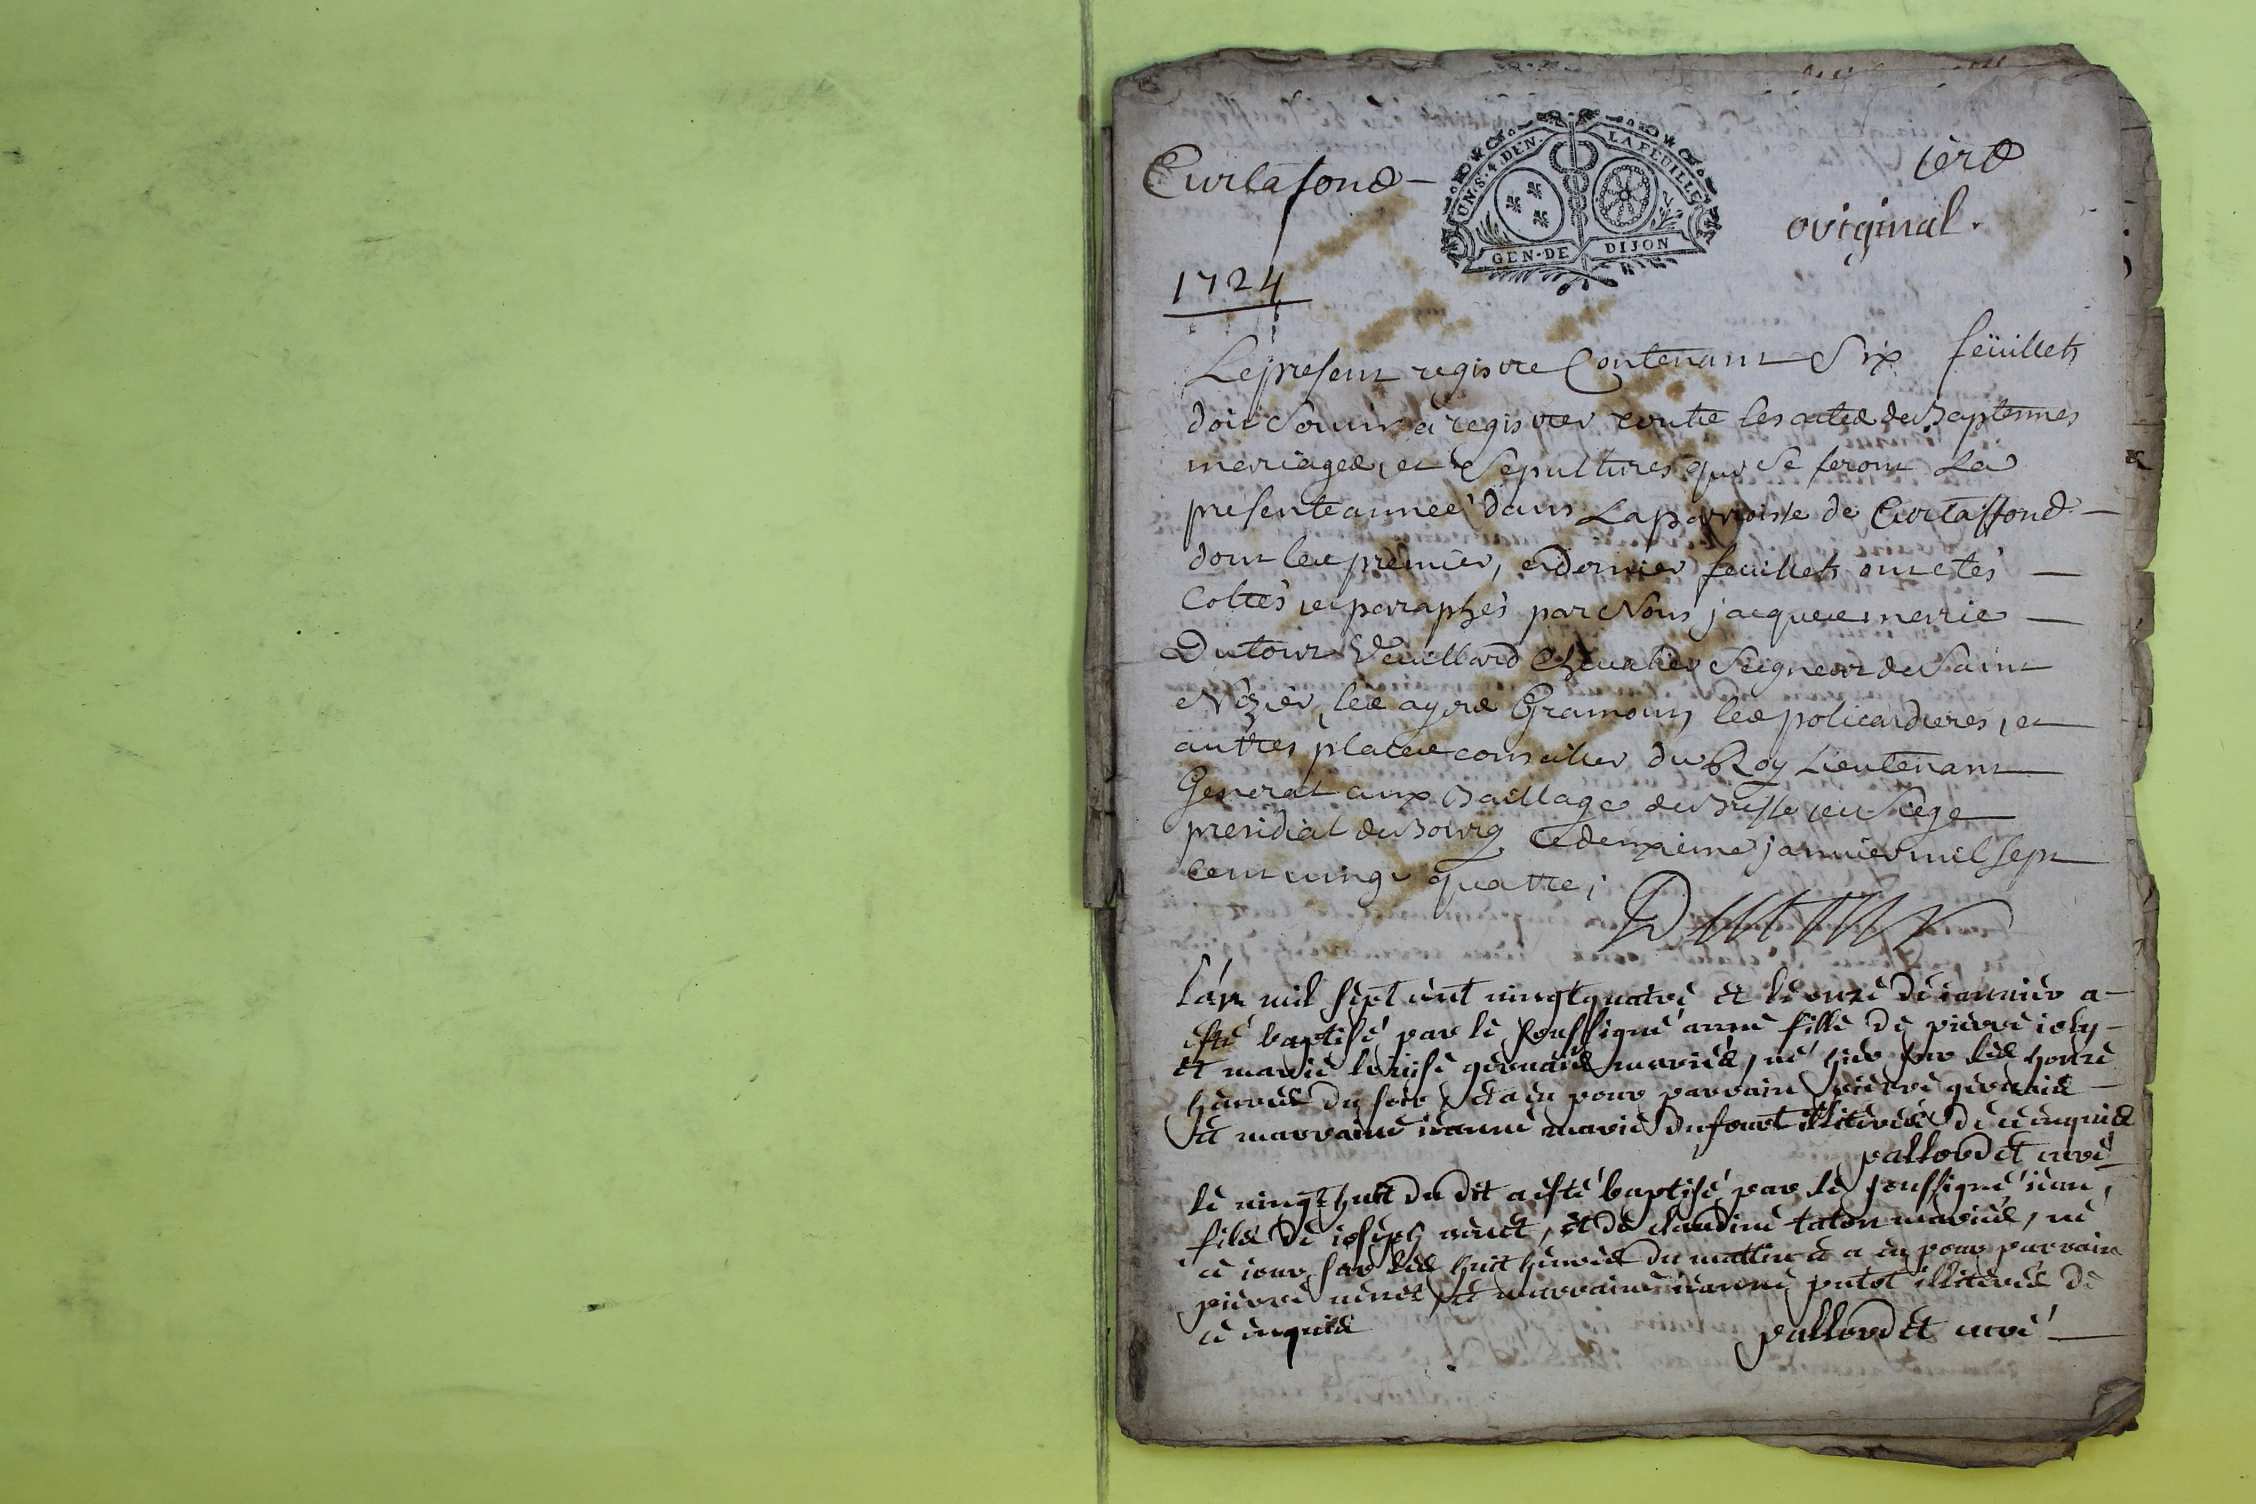 Curtafond
UN.S.4.DEN. LA FEUILLE
GEN.DE DIJON
1ere
original.
1724
Le present registre Contenant Six feüillets
doit servir a registrer toutte les actes de Baptemes
mariages, et Sepultures qui se feront La
presente annee dans La parroisse de Curtaffond
dont les premier, et dernier feuillets ont etés
Cottés et paraphés par Nous jacques marie
Dutour Vuillard Chevalier Seigneur de Saint
Nizier, les ayres Gramoux les policardieres, et
autres places conseiller du Roy Lieutenant
General aux Baillage de Bresse et Siege
presidial de Bourg Ce deuxieme janvier mil sept
Cent vingt quatre;
l'an mil sept cent vingt quatre et le onze de ianvier a
esté baptisé par le soussigné anne fille de pierre ioly
et marie louise gervais mariés, né hier sur les honze
heures du soir et a eu pour parrain pierre gervais
et marraine ieanne marie Dufour illiterés de ce enquis
pallordet curé
le vingt huit du dit a esté baptisé par le soussigné iean
fils de ioseph, et de claudine taton mariés, né
ce iour sur les huit heures du mattin et a eu pour parrain
pierre et marraine ieanne putot illiterés de
ce enquis pallordet curé